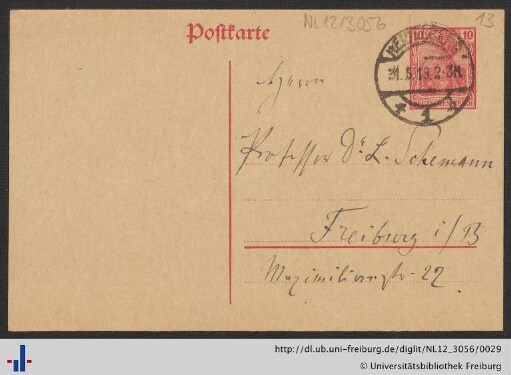 NL12/3056
13
Postkarte
10 10
31.5.19.2-3N.
* 1 *
Herrn
Professor Dr. L. Schemann
Freiburg i/B
Maximilianstr. 22
http://dl.ub.uni-freiburg.de/diglit/NL12_3056/0029
© Universitätsbibliothek Freiburg